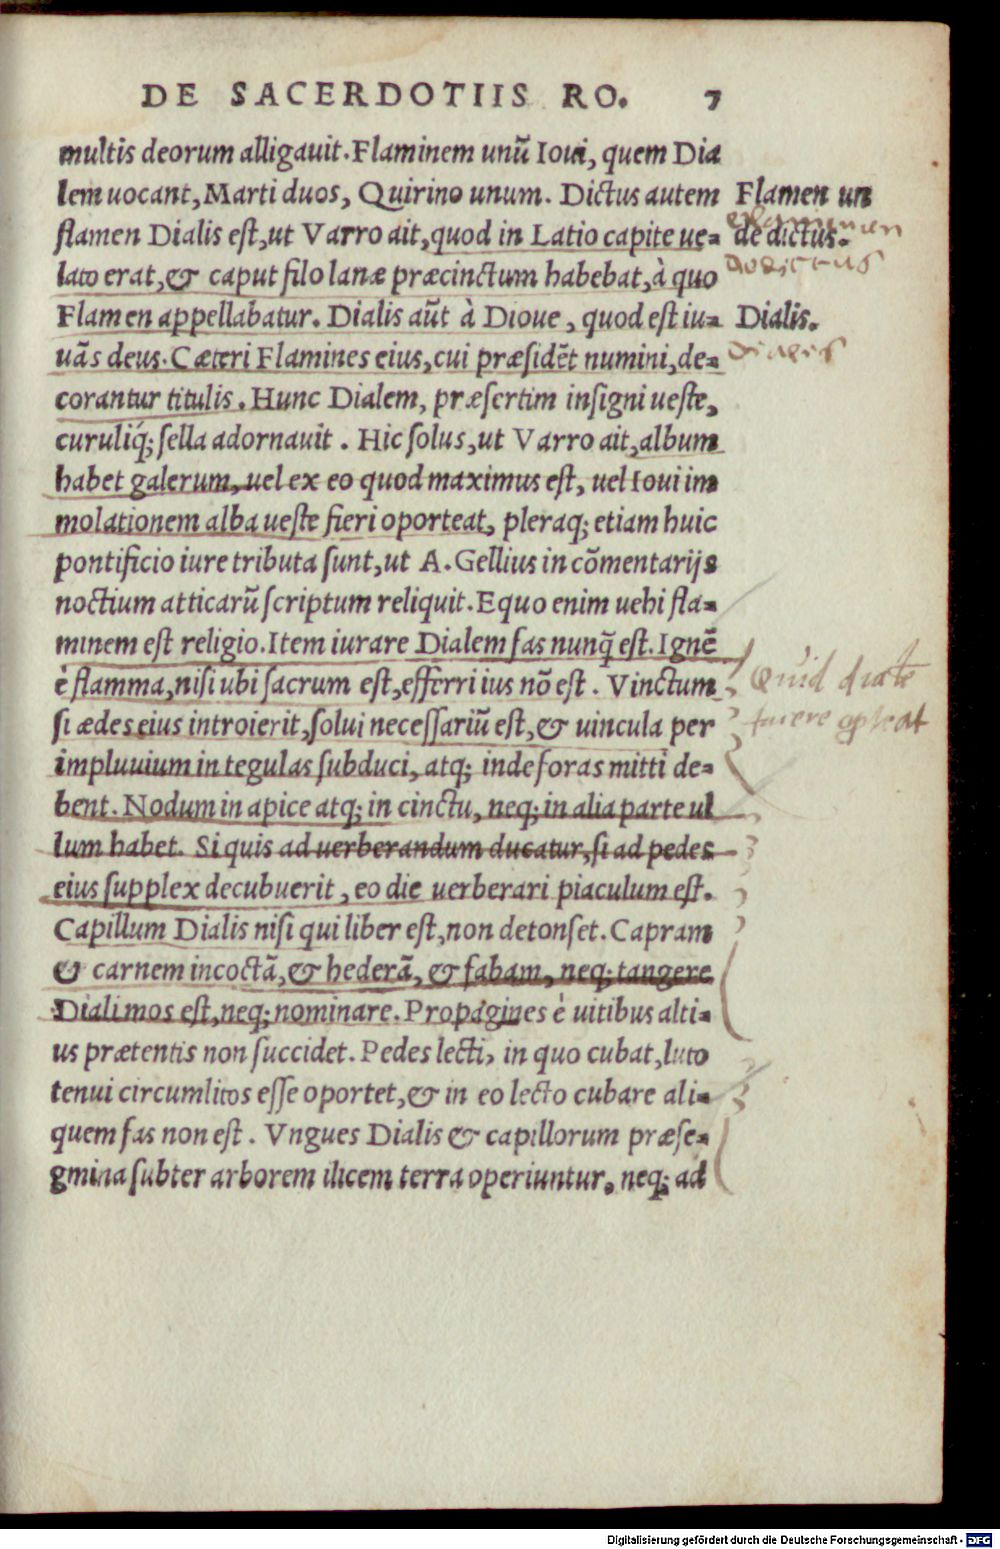 DE SACERDOTIIS RO. 7
multis deorum alligauit. Flaminem unū Ioui, quem Dia
lem uocant, Marti duos, Quirino unum. Dictus autem
Flamen un
flamen Dialis est, ut Varro ait, quod in Latio capite ue-
de dictus.
lato erat, & caput filo lanæ præcinctum habebat, à quo
Flamen appellabatur. Dialis aūt à Dioue, quod est iu-
Dialis.
uās deus. Cæteri Flamines eius, cui præsidēt numini, de-
dialis
corantur titulis. Hunc Dialem, præsertim insigni ueste,
curuliq; sella adornauit. Hic solus, ut Varro ait, album
habet galerum, uel ex eo quod maximus est, uel Ioui im
molationem alba ueste fieri oporteat, pleraq; etiam huic
pontificio iure tributa sunt, ut A. Gellius in cōmentarijs
noctium atticarū scriptum reliquit. Equo enim uehi fla-
minem est religio. Item iurare Dialem fas nunq̄ est. Ignē
è flamma, nisi ubi sacrum est, efferri ius nō est. Vinctum
Quid
si ædes eius introierit, solui necessariū est, & uincula per
impluuium in tegulas subduci, atq; inde foras mitti de-
bent. Nodum in apice atq; in cinctu, neq; in alia parte ul
lum habet. Si quis ad uerberandum ducatur, si ad pedes
eius supplex decubuerit, eo die uerberari piaculum est.
Capillum Dialis nisi qui liber est, non detonset. Capram
& carnem incoctā, & hederā, & fabam, neq; tangere
Diali mos est, neq; nominare. Propagines è uitibus alti-
us prætentis non succidet. Pedes lecti, in quo cubat, luto
tenui circumlitos esse oportet, & in eo lecto cubare ali-
quem fas non est. Vngues Dialis & capillorum præse-
gmina subter arborem ilicem terra operiuntur, neq; ad
Digitalisierung gefördert durch die Deutsche Forschungsgemeinschaft - DFG